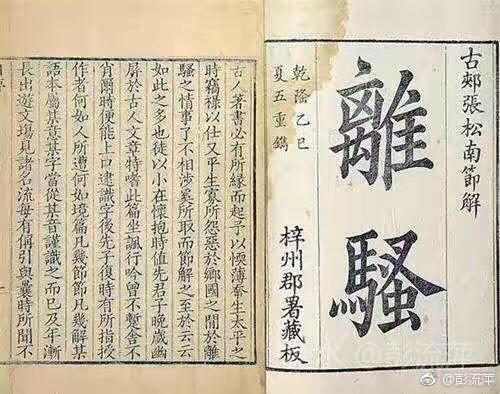 古郟張松南節解
離騷
乾隆乙巳
夏五重鐫
梓州郡署藏板
古人著書必有所緣而起予以愞薄幸生太平之
時竊祿以仕又平生寡所怨惡於鄉國之間於離
騷之情事了不相涉奚所取而節解之至於云云
如此之多也徒以小在懷抱時值先君子晚歲幽
屏於古人文章特嗜此篇坐諷行吟曾不蹔舍不
肖爾時便能上口逮識字後先子復時有所指授
作者何如人所遭何如境篇凡幾節節凡幾解某
語本屬某意某字當從某音謹識之而已及年漸
長出遊文塲見諸名流每有傳引與曩時所聞不
@彭流萍
@彭流萍